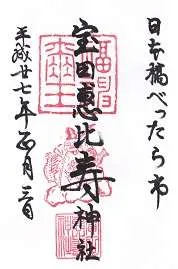 日本橋べったら市
宝田恵比寿神社
平成廿七年正月三日